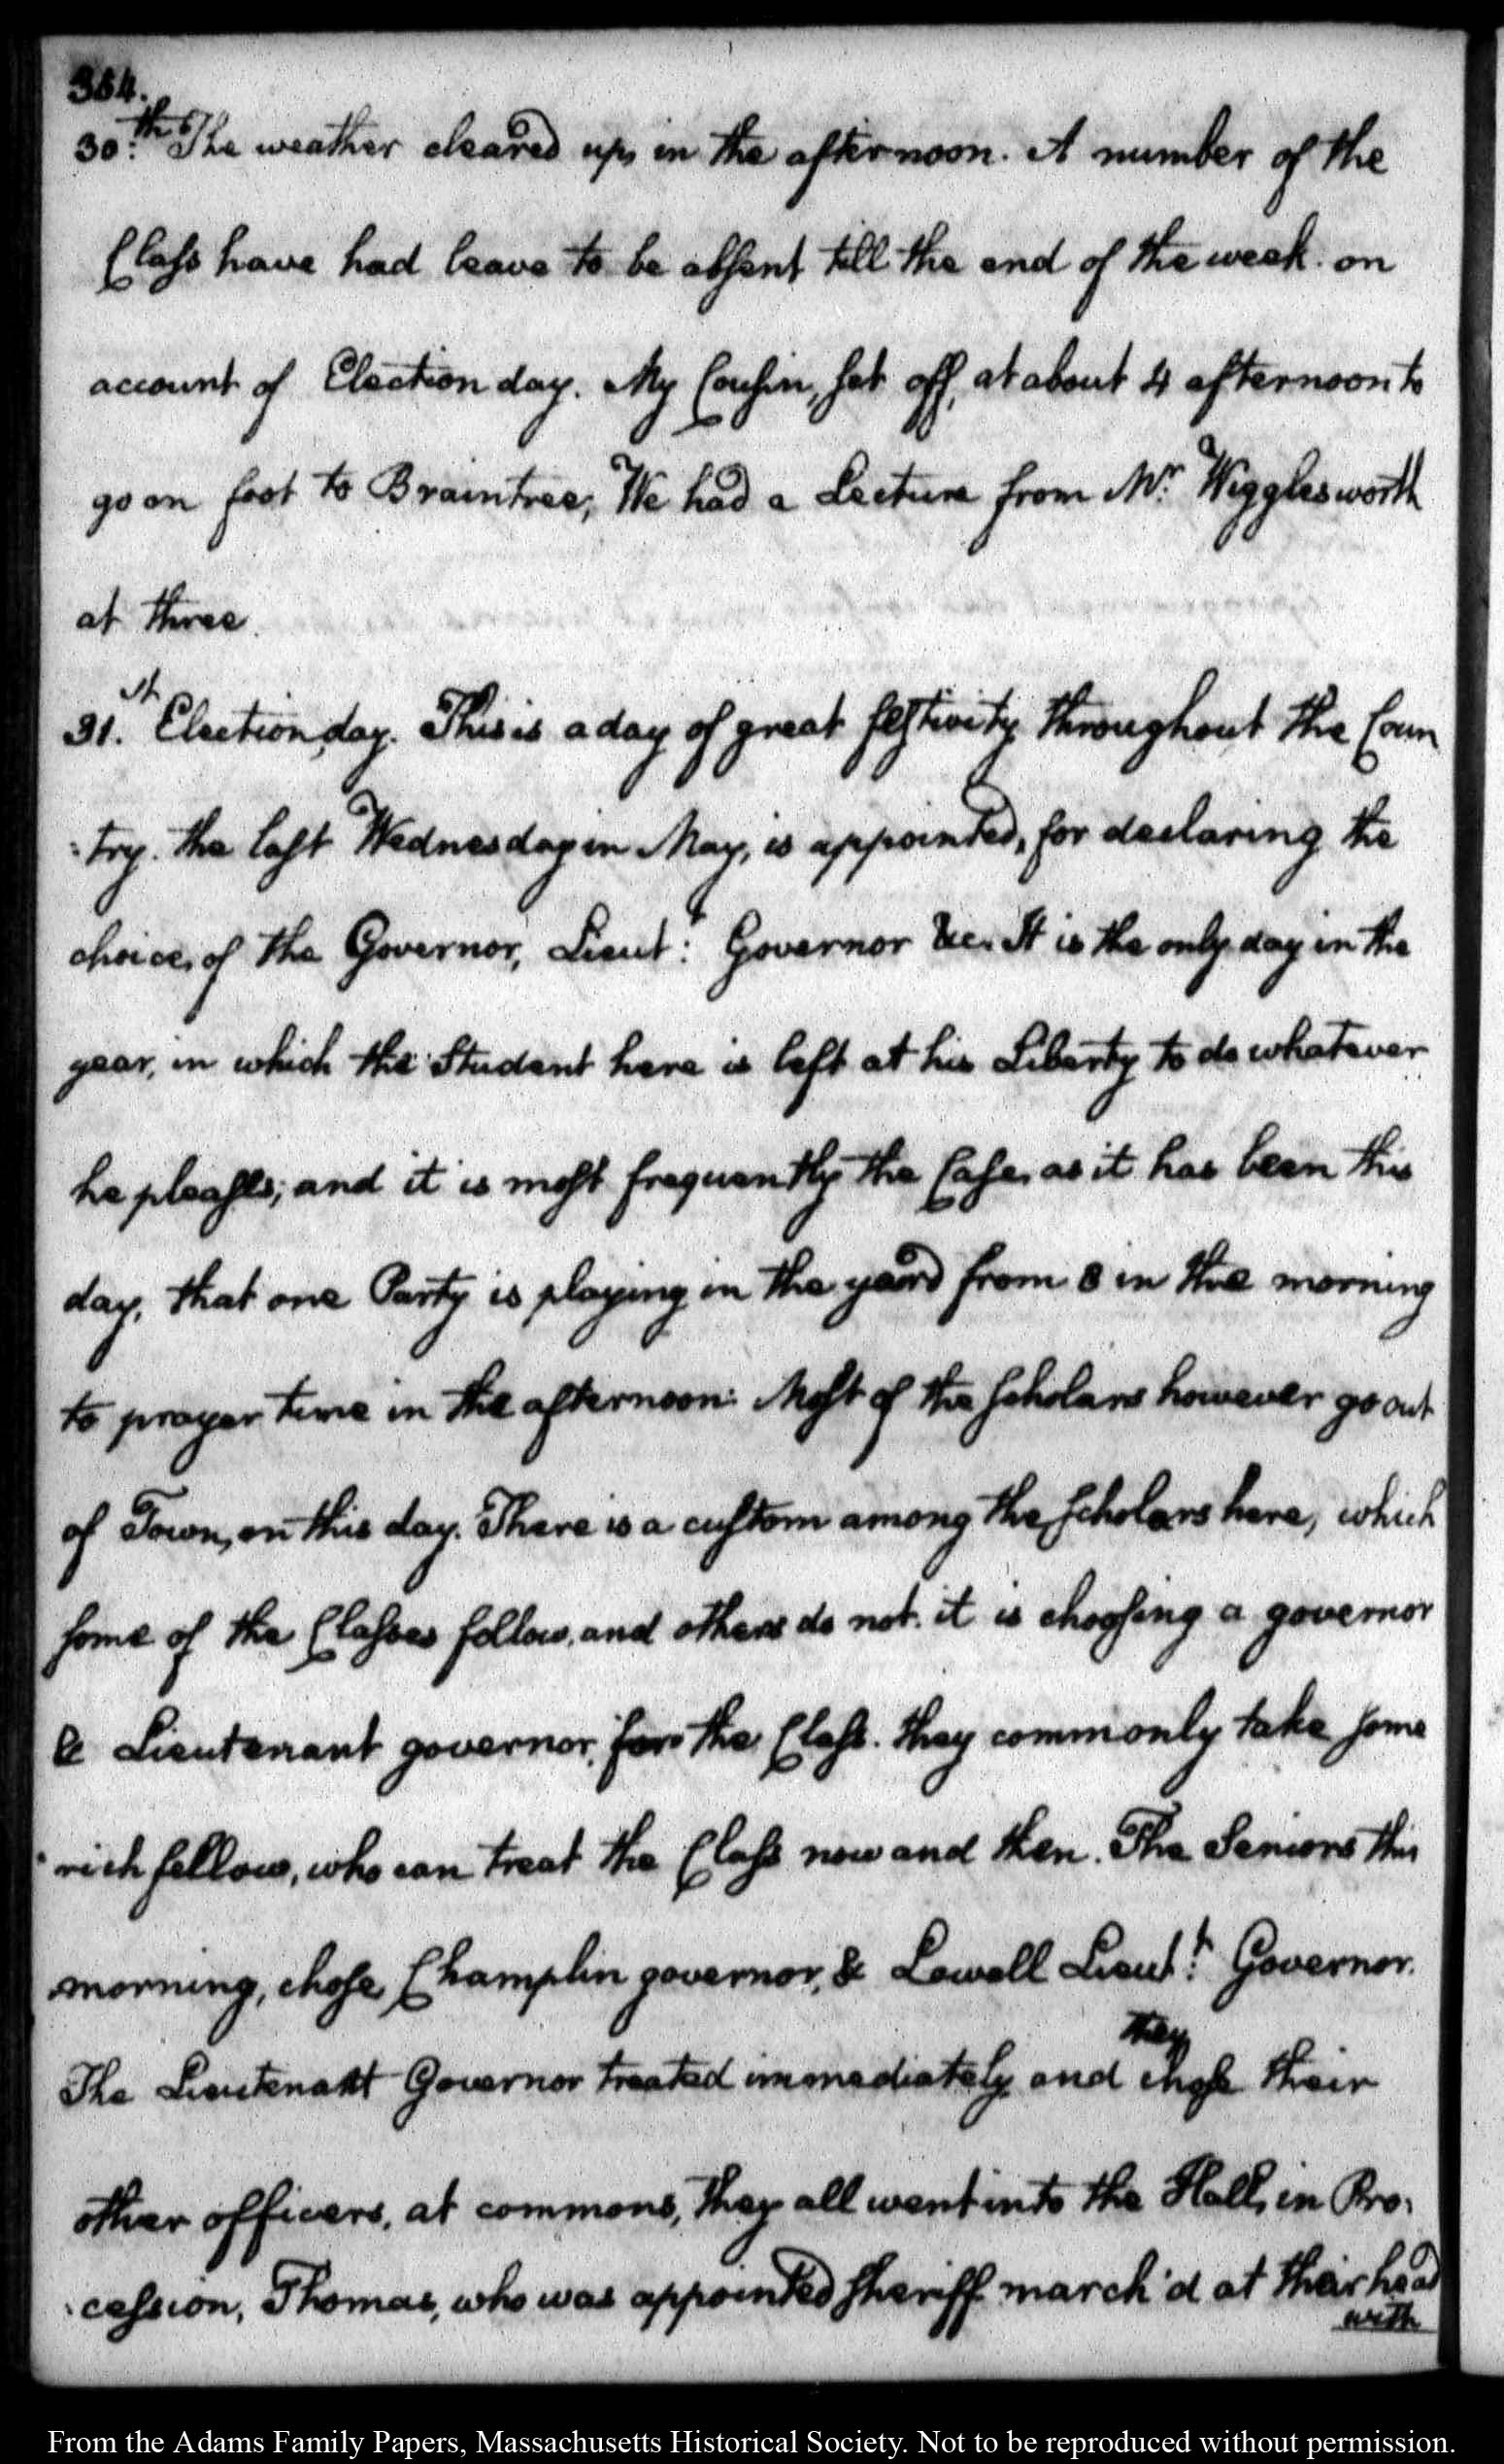 364.
30.th The weather cleared up, in the afternoon. A number of the
Class have had leave to be absent till the end of the week. on
account of Election day. My Cousin, set off, at about 4 afternoon to
go on foot to Braintree, We had a Lecture from Mr. Wigglesworth
at three.
31.st Election day. This is a day of great festivity throughout the Coun
:try. the last Wednesday in May, is appointed, for declaring the
choice, of the Governor, Lieut: Governor &c. It is the only day in the
year, in which the Student here is left at his Liberty to do whatever
he pleases; and it is most frequently the Case, as it has been this
day, that one Party is playing in the yard from 8 in the morning
to prayer time in the afternoon: Most of the scholars however go out
of Town, on this day. There is a custom among the scholars here, which
some of the Classes follow, and others do not. it is choosing a governor
& Lieutenant governor, for the Class. they commonly take some
rich fellow, who can treat the Class now and then. The Seniors this
morning, chose, Champlin governor, & Lowell Lieut.t Governor.
they
The Lieutenant Governor treated immediately, and chose their
other officers, at commons, they all went into the Hall, in Pro:
:cession, Thomas, who was appointed sheriff march'd at their head
with
From the Adams Family Papers, Massachusetts Historical Society. Not to be reproduced without permission.